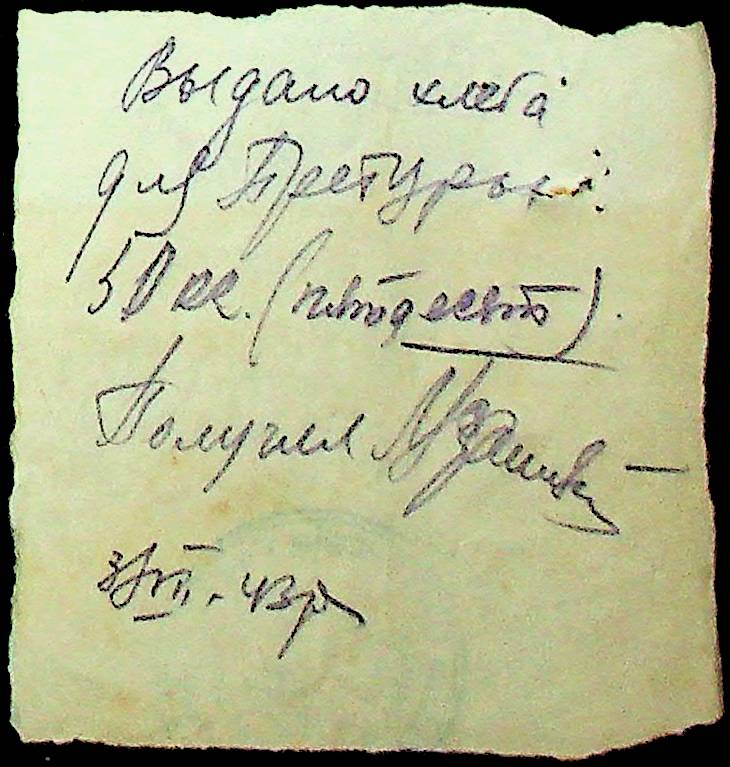 Выдано хлеба
для Претуры
50 кг. (пятьдесят).
Получил
VII. 43г